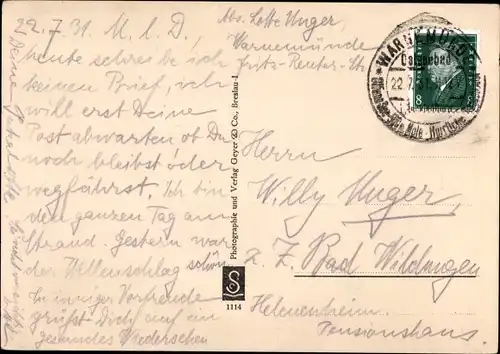 22.7.31. M. l. D.,
heute schreibe ich
keinen Brief, ich
will erst Deine
Post abwarten ob Du
noch bleibst oder
wegfährst. Ich bin
den ganzen Tag am
Strand. Gestern war
der Wellenschlag schön.
In inniger Vorfreude
grüßt Dich auf ein
gesundes Wiedersehen
Deine
Abs. Lotte Unger,
Warnemünde
Fritz-Reuter-Str.
WARNEMÜNDE
Ostseebad
22.7.31
8
Photographie und Verlag Geyer & Co., Breslau-I
1114
Herrn
Willy Unger,
z. Z. Bad Wildungen
Helenenheim
Pensionshaus